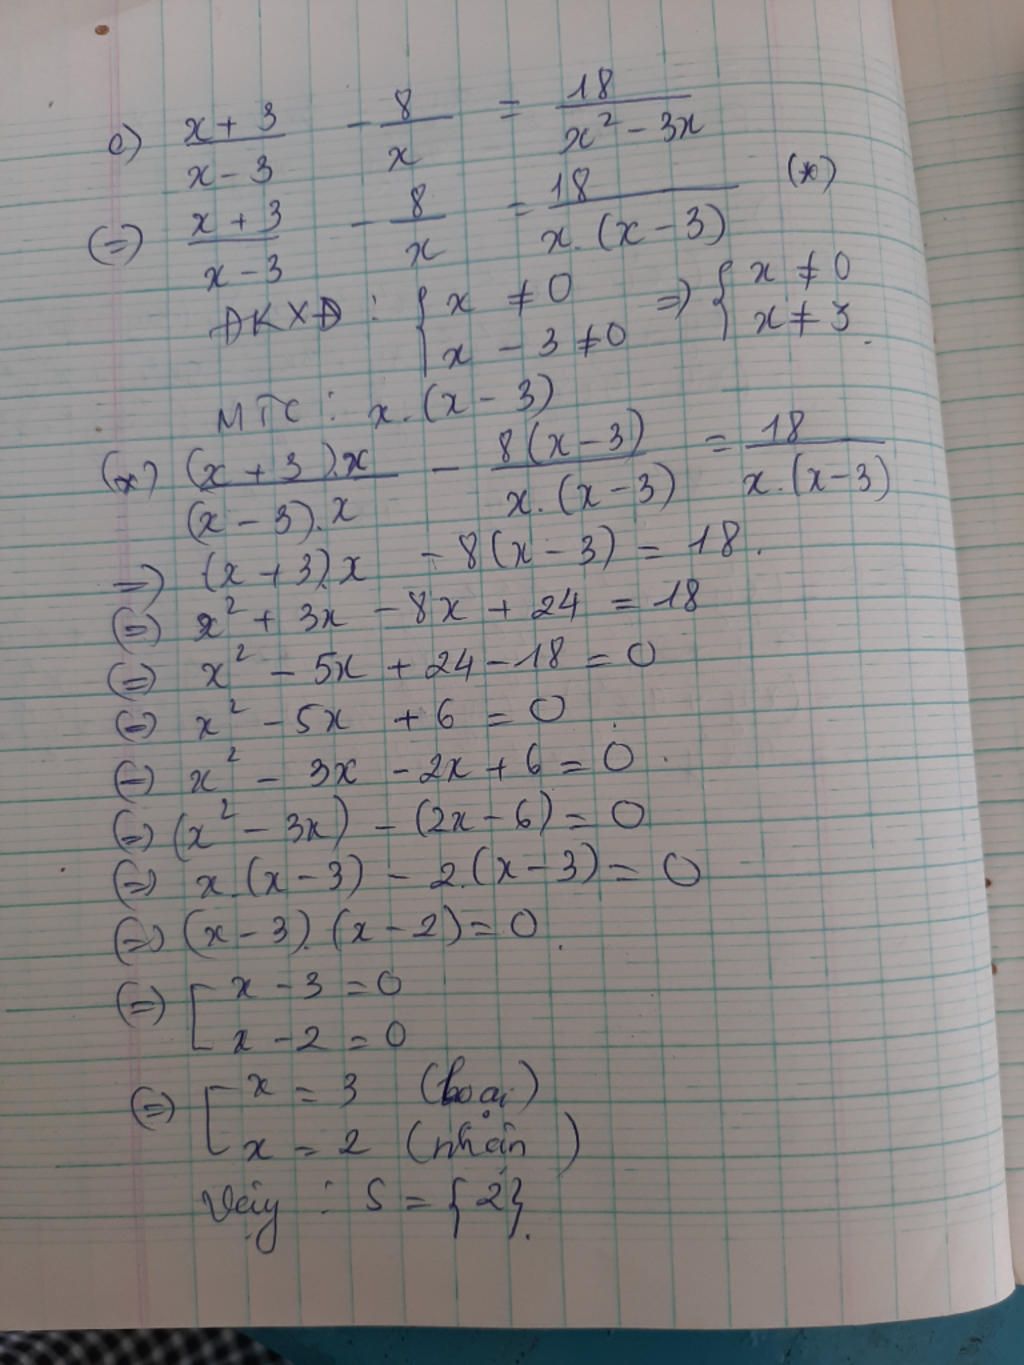 c) (x + 3)/(x - 3) - 8/x = 18/(x² - 3x)
(=) (x + 3)/(x - 3) - 8/x = 18/(x.(x - 3)) (*)
ĐKXĐ : { x ≠ 0 ; x - 3 ≠ 0 => { x ≠ 0 ; x ≠ 3.
MTC : x.(x - 3)
(*) ((x + 3).x)/((x - 3).x) - (8(x - 3))/(x.(x - 3)) = 18/(x.(x - 3))
=) (x + 3).x - 8(x - 3) = 18.
(=) x² + 3x - 8x + 24 = 18
(=) x² - 5x + 24 - 18 = 0
(=) x² - 5x + 6 = 0.
(=) x² - 3x - 2x + 6 = 0.
(=) (x² - 3x) - (2x - 6) = 0
(=) x.(x - 3) - 2.(x - 3) = 0
(=) (x - 3).(x - 2) = 0.
(=) [ x - 3 = 0
x - 2 = 0
(=) [ x = 3 (loại)
x = 2 (nhận)
Vậy : S = {2}.